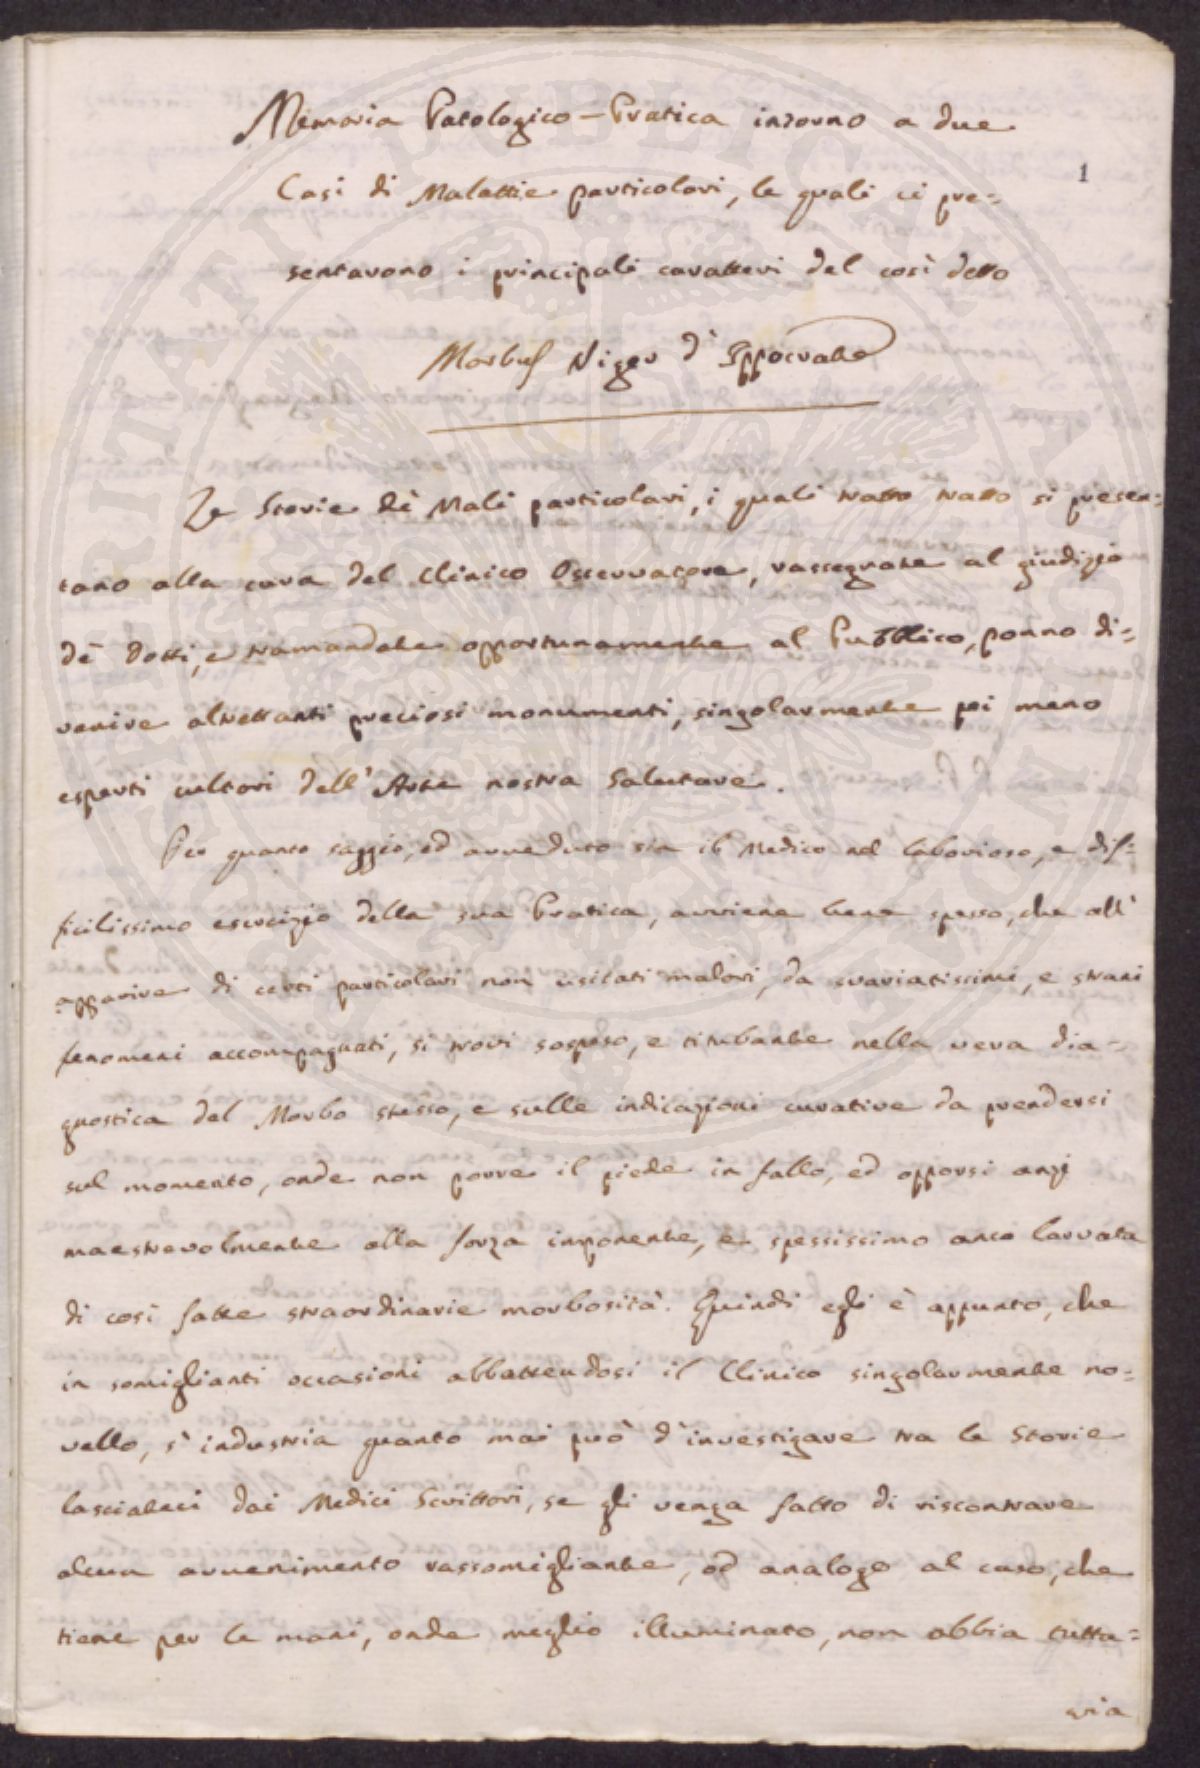 Memoria Patologico-Pratica intorno a due
1
Casi di Malattie particolari, le quali ci pre=
sentarono i principali caratteri del così detto
Morbus Niger d'Ippocrate
Le Storie de' Mali particolari, i quali tratto tratto si presen=
tano alla cura del Clinico Osservatore, rassegnate al giudizio
de' Dotti, e tramandate opportunamente al Pubblico, ponno di=
venire altrettanti preciosi monumenti, singolarmente pei meno
esperti cultori dell'Arte nostra Salutare.
Per quanto saggio, ed avveduto sia il Medico nel laborioso, e dif=
ficilissimo esercizio della sua Pratica, avviene bene spesso, che all'
apparire di certi particolari non usitati malori, da svariatissimi, e strani
fenomeni accompagnati, si trovi sospeso, e titubante nella vera dia=
gnostica del Morbo stesso, e sulle indicazioni curative da prendersi
sul momento, onde non porre il piede in fallo, ed opporsi anzi
maestrevolmente alla forza imponente, e spessissimo anco larvata
di così fatte straordinarie morbosità. Quindi egli è appunto, che
in somiglianti occasioni abbattendosi il Clinico singolarmente no=
vello, s'industria quanto mai può d'investigare tra le Storie
lasciateci dai Medici Scrittori, se gli venga fatto di riscontrare
alcun avvenimento rassomigliante, od analogo al caso, che
tiene per le mani, onde meglio illuminato, non abbia tutta=
via